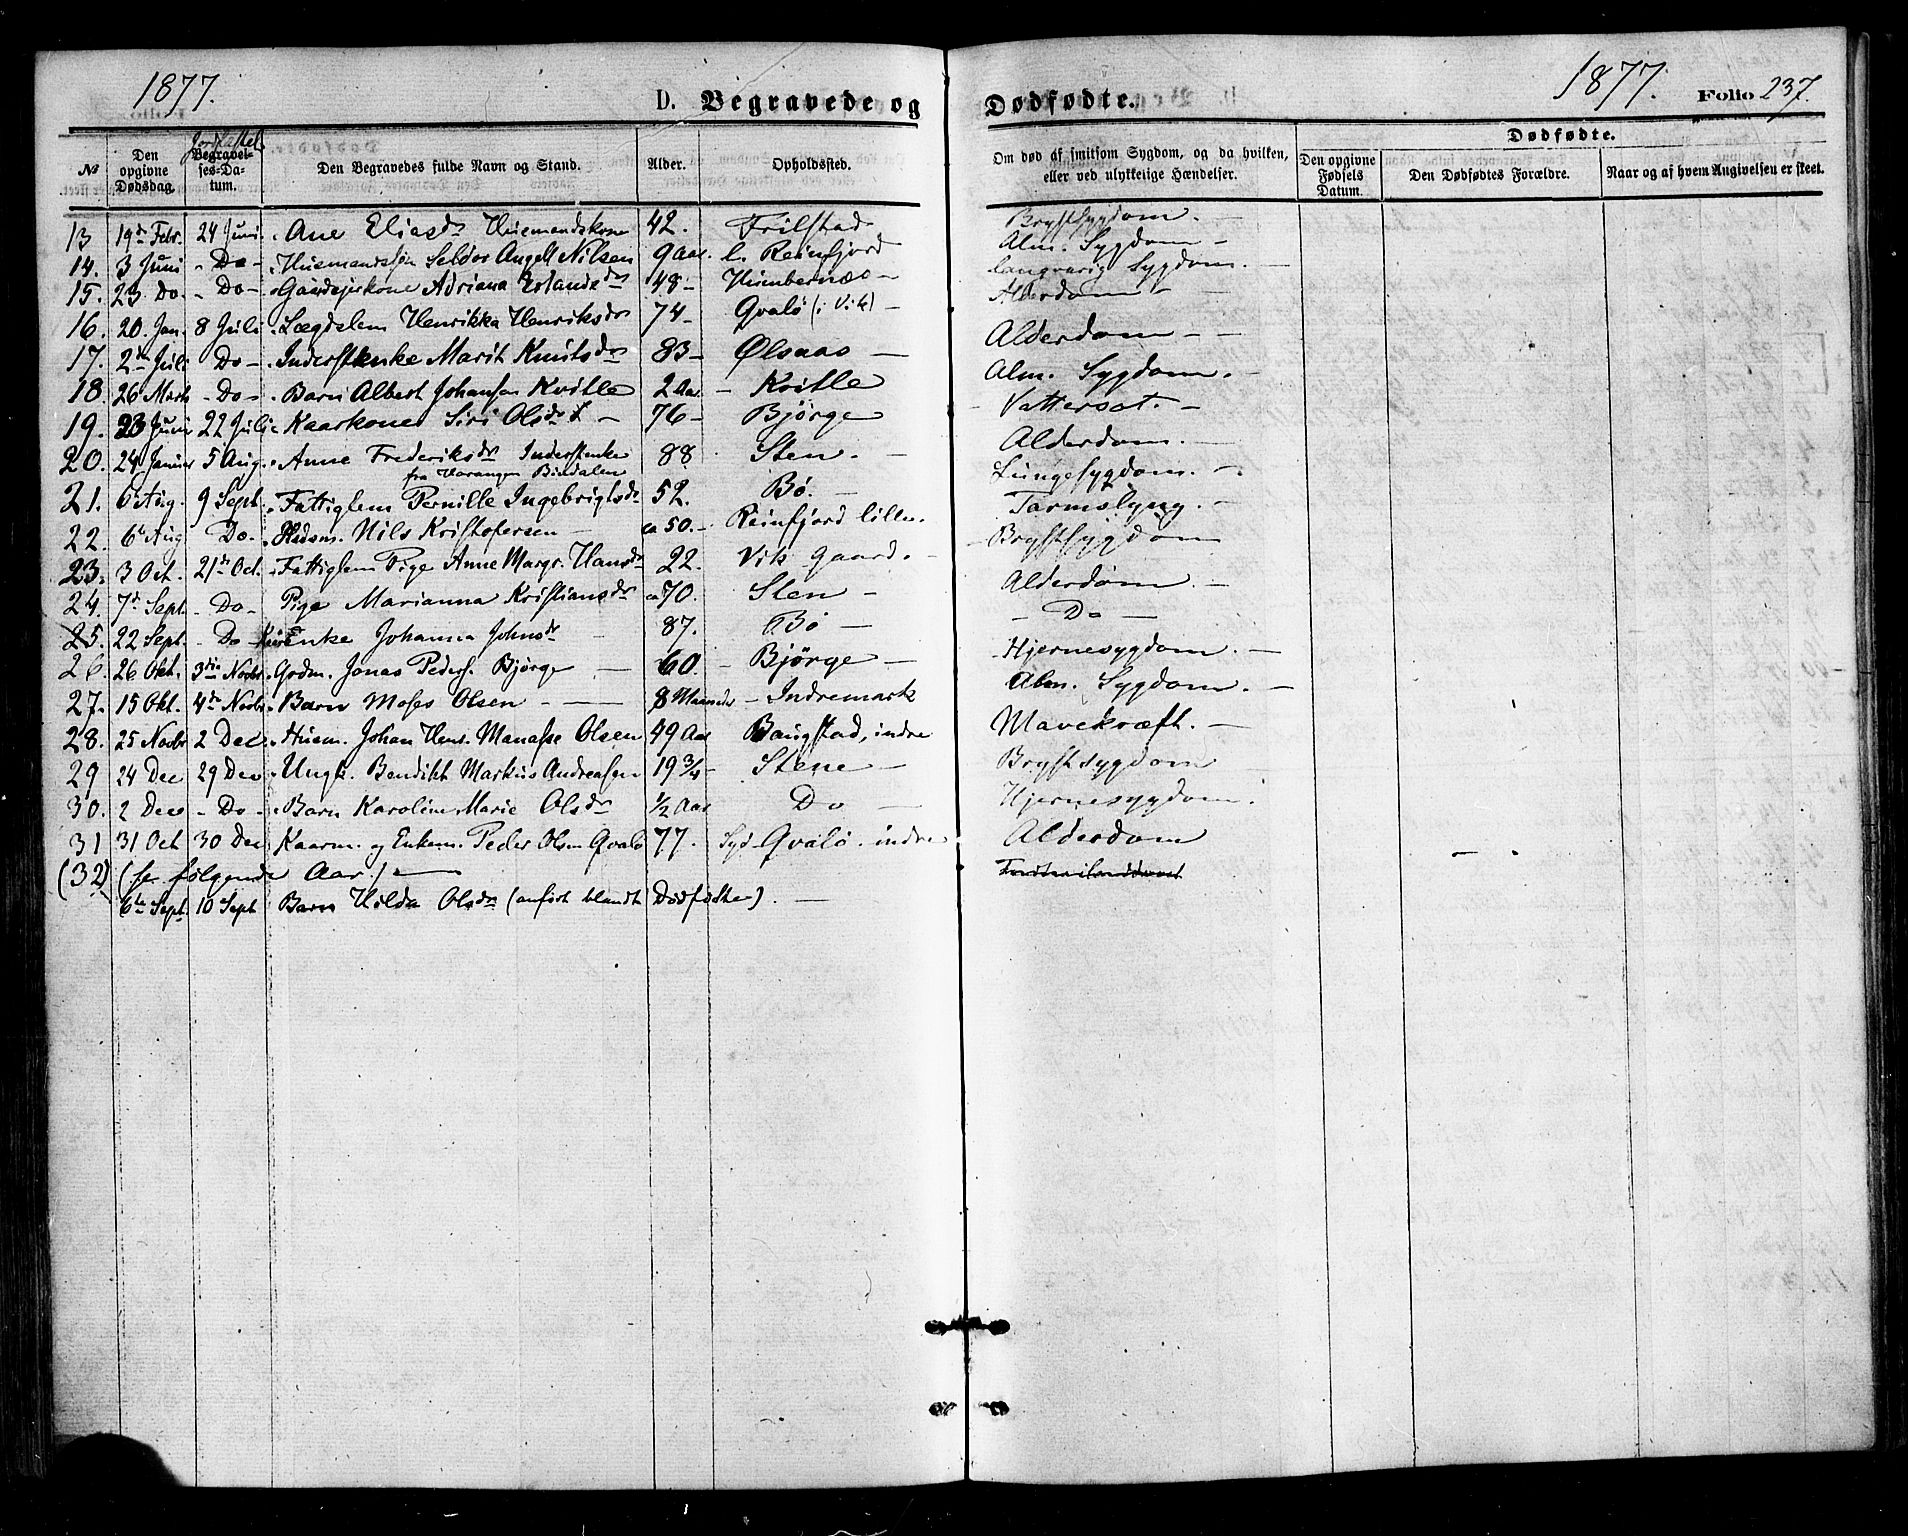 1877.
D. Begravede og
Dødfødte.
1877. Folio 237.
Jordfæstel.
№ Den opgivne Dødsdag. Begravelses-Datum. Den Begravedes fulde Navn og Stand. Alder. Opholdssted. Om død af smitsom Sygdom, og da hvilken, eller ved ulykkelige Hændelser. Dødfødte. Den opgivne Fødsels Datum. Den Dødfødtes Forældre. Naar og af hvem Angivelsen er skeet.
13 19de Febr. 24 Juni. Ane Eliasdr Huusmandskone 42. Frilstad Brystsygdom. –
14. 3 Juni - Do - Huusmandssøn Seldor Angell Nilsen 9 Aar. l. Reinfjord Alm. Sygdom –
15. 23 Do - Do - Gaardejerkone Adriana Erlandsdr 48 - Humbernæs - langvarig Sygdom. –
16. 20 Jan. 8 Juli Lægdslem Henrikka Henriksdr 74 - Qvalø (i Vik) - Alderdom –
17. 2den Juli Do - Inderstenke Marit Knutsdr 83 - Ølsaas - Alderdom –
18. 26 Marts - Do - Barn Albert Johansen Kvitle 2 Aar - Kvitle Alm. Sygdom. –
19. 23 Juni 22 Juli Kaarkone Siri Olsdr – 76 - Bjørge - Vattersot. –
20. 24 Januar 5 Aug. Anne Frederiksdr Inderstenke 88 Sten. - Alderdom. –
fra Horangen Bindalen
21. 6 Aug. 9 Sept. Fattiglem Pernille Ingebrigtsdr 52. Bø. – Lungesygdom. –
22. 6te Aug Do - Husm. Nils Kristofersen – ca 50. - Reinfjord lille. Tarmslyng. –
23. 3 Oct. 21de Oct. Fattiglem Pige Anne Margr. Hansdr 22. Vik Gaard. – Brystsygdom
24. 7de Sept. - Do - Pige Marianna Kristiansdr ca 70. Sten – Alderdom. –
25. 22 Sept. - Do - Enke Johanna Johnsdr – 87. Bø – – Do –
26. 26 Okt. 3die Novbr. Grdm. Jonas Peders. Bjørge – 60. Bjørge – Hjernesygdom. –
27. 15 Okt. 4de Novbr. Barn Moses Olsen – – 8 Maaneder - Indremark Alm. Sygdom. –
28. 25 Novbr 2 Dec. Husm. Johan Hens. Manasse Olsen 49 Aar Baugstad, indre Mavekræft. –
29 24 Dec 29 Dec Ungk. Bendikt Markus Andreasen 19 3/4 - Stene – Brystsygdom
30. 2 Dec - Do - Barn Karolin Marie Olsdr 1/2 Aar Do – Hjernesygdom.
31 31 Oct 30 Dec Kaarm. og Enkem. Peder Olsen Qvalø 77. Syd-Qvalø. indre Alderdom
(32) (se følgende Aar!) –
6te Sept. 10 Sept Barn Hilda Olsdr (anført blandt Dødfødte). –